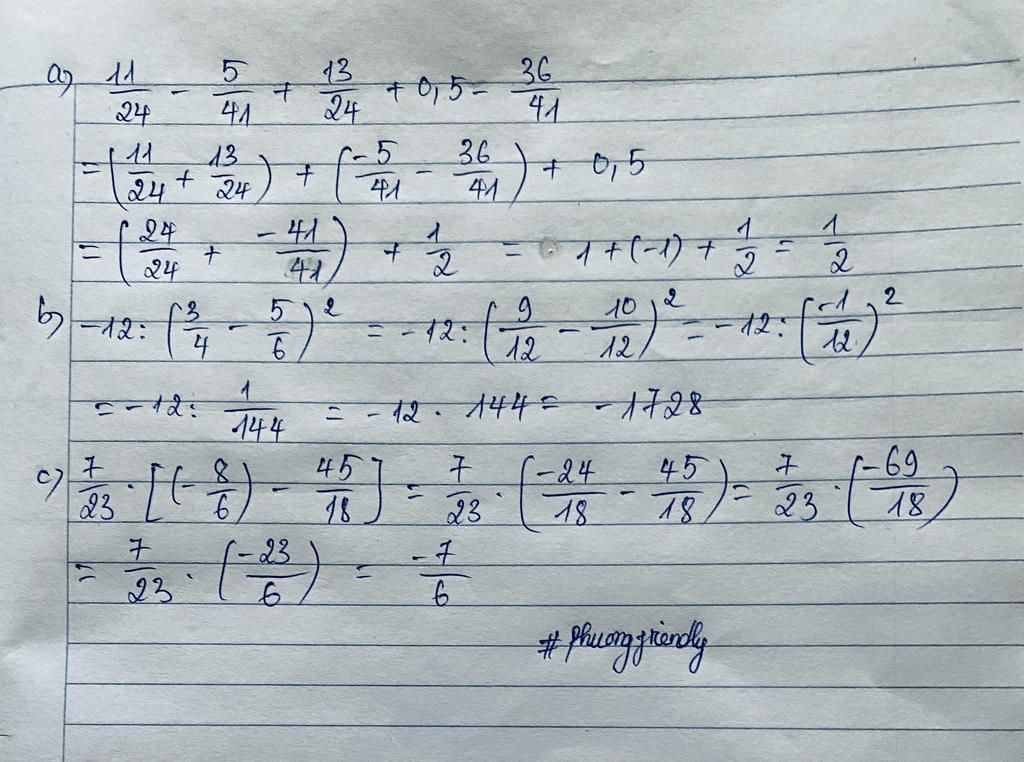 a) 11/24 - 5/41 + 13/24 + 0,5 - 36/41
= (11/24 + 13/24) + (-5/41 - 36/41) + 0,5
= (24/24 + -41/41) + 1/2 = 1 + (-1) + 1/2 = 1/2
b) -12 : (3/4 - 5/6)² = -12 : (9/12 - 10/12)² = -12 : (-1/12)²
= -12 : 1/144 = -12 . 144 = -1728
c) 7/23 . [(-8/6) - 45/18] = 7/23 . (-24/18 - 45/18) = 7/23 . (-69/18)
= 7/23 . (-23/6) = -7/6
# phuongfriendly